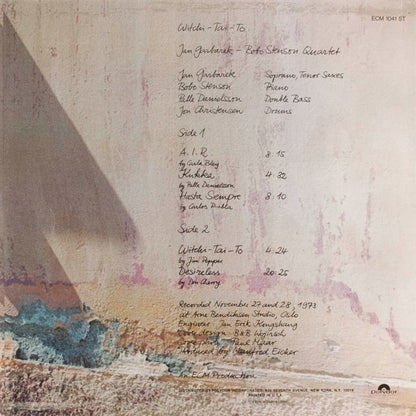 ECM 1041 ST
Witchi-Tai-To
Jan Garbarek - Bobo Stenson Quartet
Jan Garbarek Soprano, Tenor Saxes
Bobo Stenson Piano
Palle Danielsson Double Bass
Jon Christensen Drums
Side 1
A.I.R. 8:15
by Carla Bley
Kukka 4:32
by Palle Danielsson
Hasta Siempre 8:10
by Carlos Puebla
Side 2
Witchi-Tai-To 4:24
by Jim Pepper
Desireless 20:25
by Don Cherry
Recorded November 27 and 28, 1973
at Arne Bendiksen Studio, Oslo
Engineer: Jan Erik Kongshaug
Cover design: B&B Wojirsch
Paul Maar
Produced by Manfred Eicher
ECM Production
NEW YORK, N.Y. 10019
PRINTED IN U.S.A.
Polydor